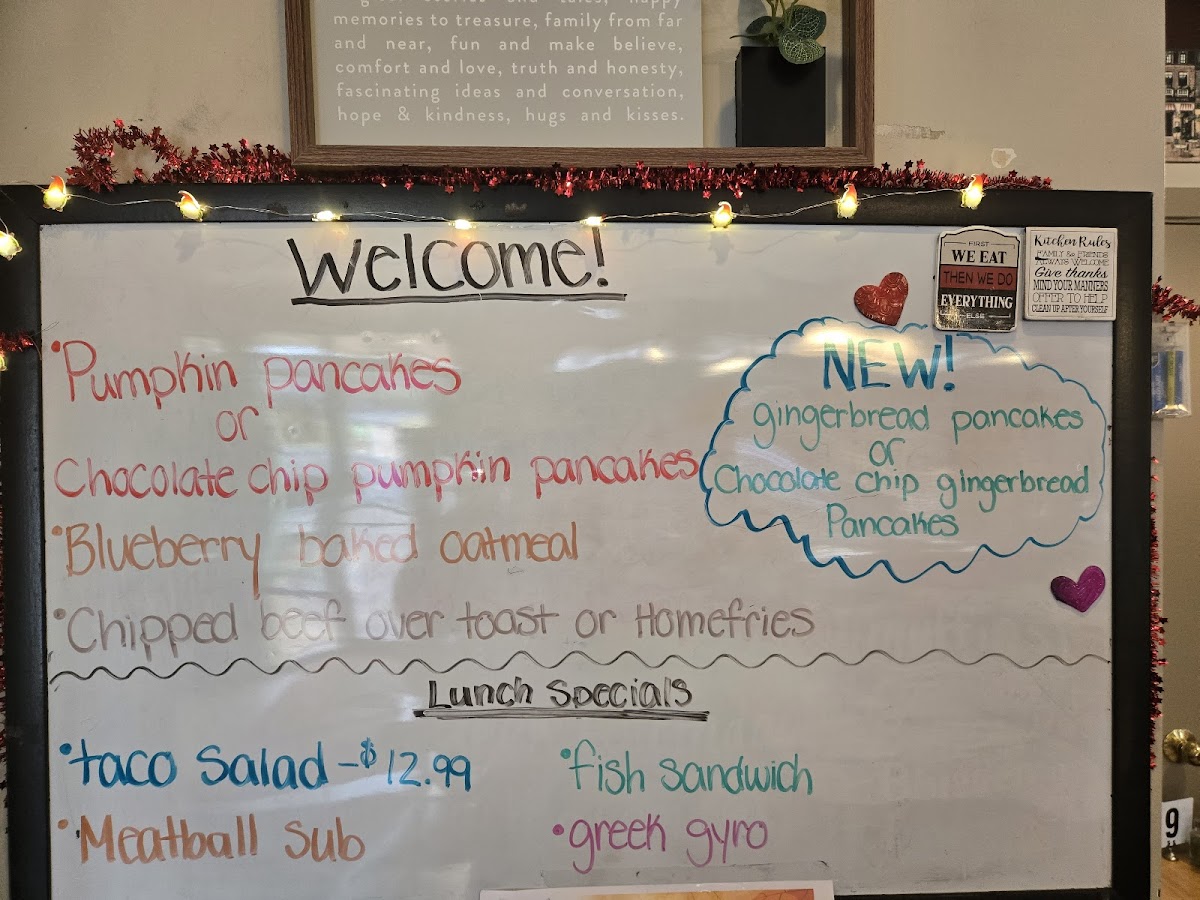 memories to treasure, family from far
and near, fun and make believe,
comfort and love, truth and honesty,
fascinating ideas and conversation,
hope & kindness, hugs and kisses.
Welcome!
FIRST
WE EAT
THEN WE DO
EVERYTHING
ELSE
Kitchen Rules
FAMILY & FRIENDS
ALWAYS WELCOME
Give thanks
MIND YOUR MANNERS
OFFER TO HELP
CLEAN UP AFTER YOURSELF
•Pumpkin pancakes
or
Chocolate chip pumpkin pancakes
•Blueberry baked oatmeal
•Chipped beef over toast or Homefries
NEW!
gingerbread pancakes
or
Chocolate chip gingerbread
Pancakes
Lunch Specials
•taco Salad - $12.99
•Meatball Sub
•fish sandwich
•greek gyro
9